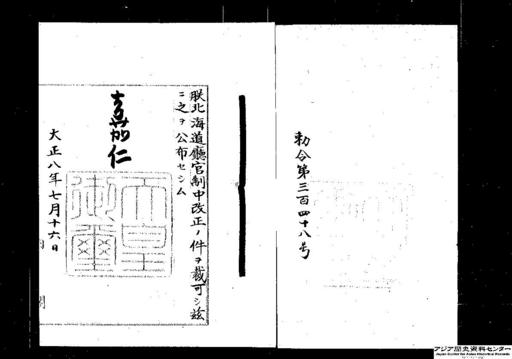 勅令第三百四十八号
朕北海道廳官制中改正ノ件ヲ裁可シ茲
ニ之ヲ公布セシム
嘉仁
天皇
御璽
大正八年七月十六日
内
アジア歴史資料センター
Japan Center for Asian Historical Records